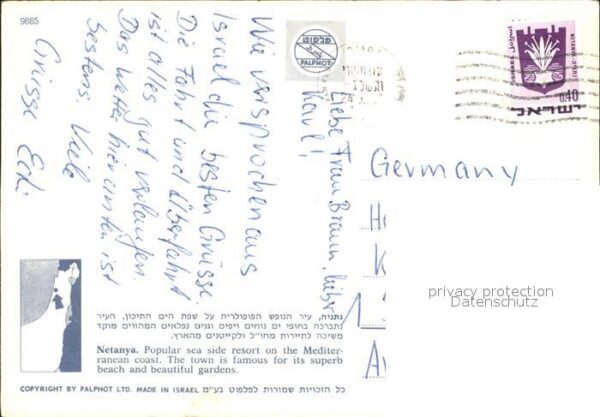 9865
פלפוט
PALPHOT
ISRAEL
اسرائيل
NETANYA
נתניה
0.40
ישראל
Liebe Frau Braun, lieber
Karl!
Wie versprochen aus
Israel die besten Grüsse.
Die Fahrt und Überfahrt
ist alles gut verlaufen.
Das Wetter hier unten ist
bestens. Viele
Grüsse Edi
Germany
H
K
A
privacy protection
Datenschutz
נתניה, עיר הנופש הפופולרית על שפת הים התיכון, העיר
נתברכה בחופי ים נוחים ויפים וגנים נפלאים המהווים מוקד
משיכה לתיירות מחו״ל ולקייטנים מהארץ.
Netanya. Popular sea side resort on the Mediter-
ranean coast. The town is famous for its superb
beach and beautiful gardens.
COPYRIGHT BY PALPHOT LTD. MADE IN ISRAEL כל הזכויות שמורות לפלפוט בע״מ